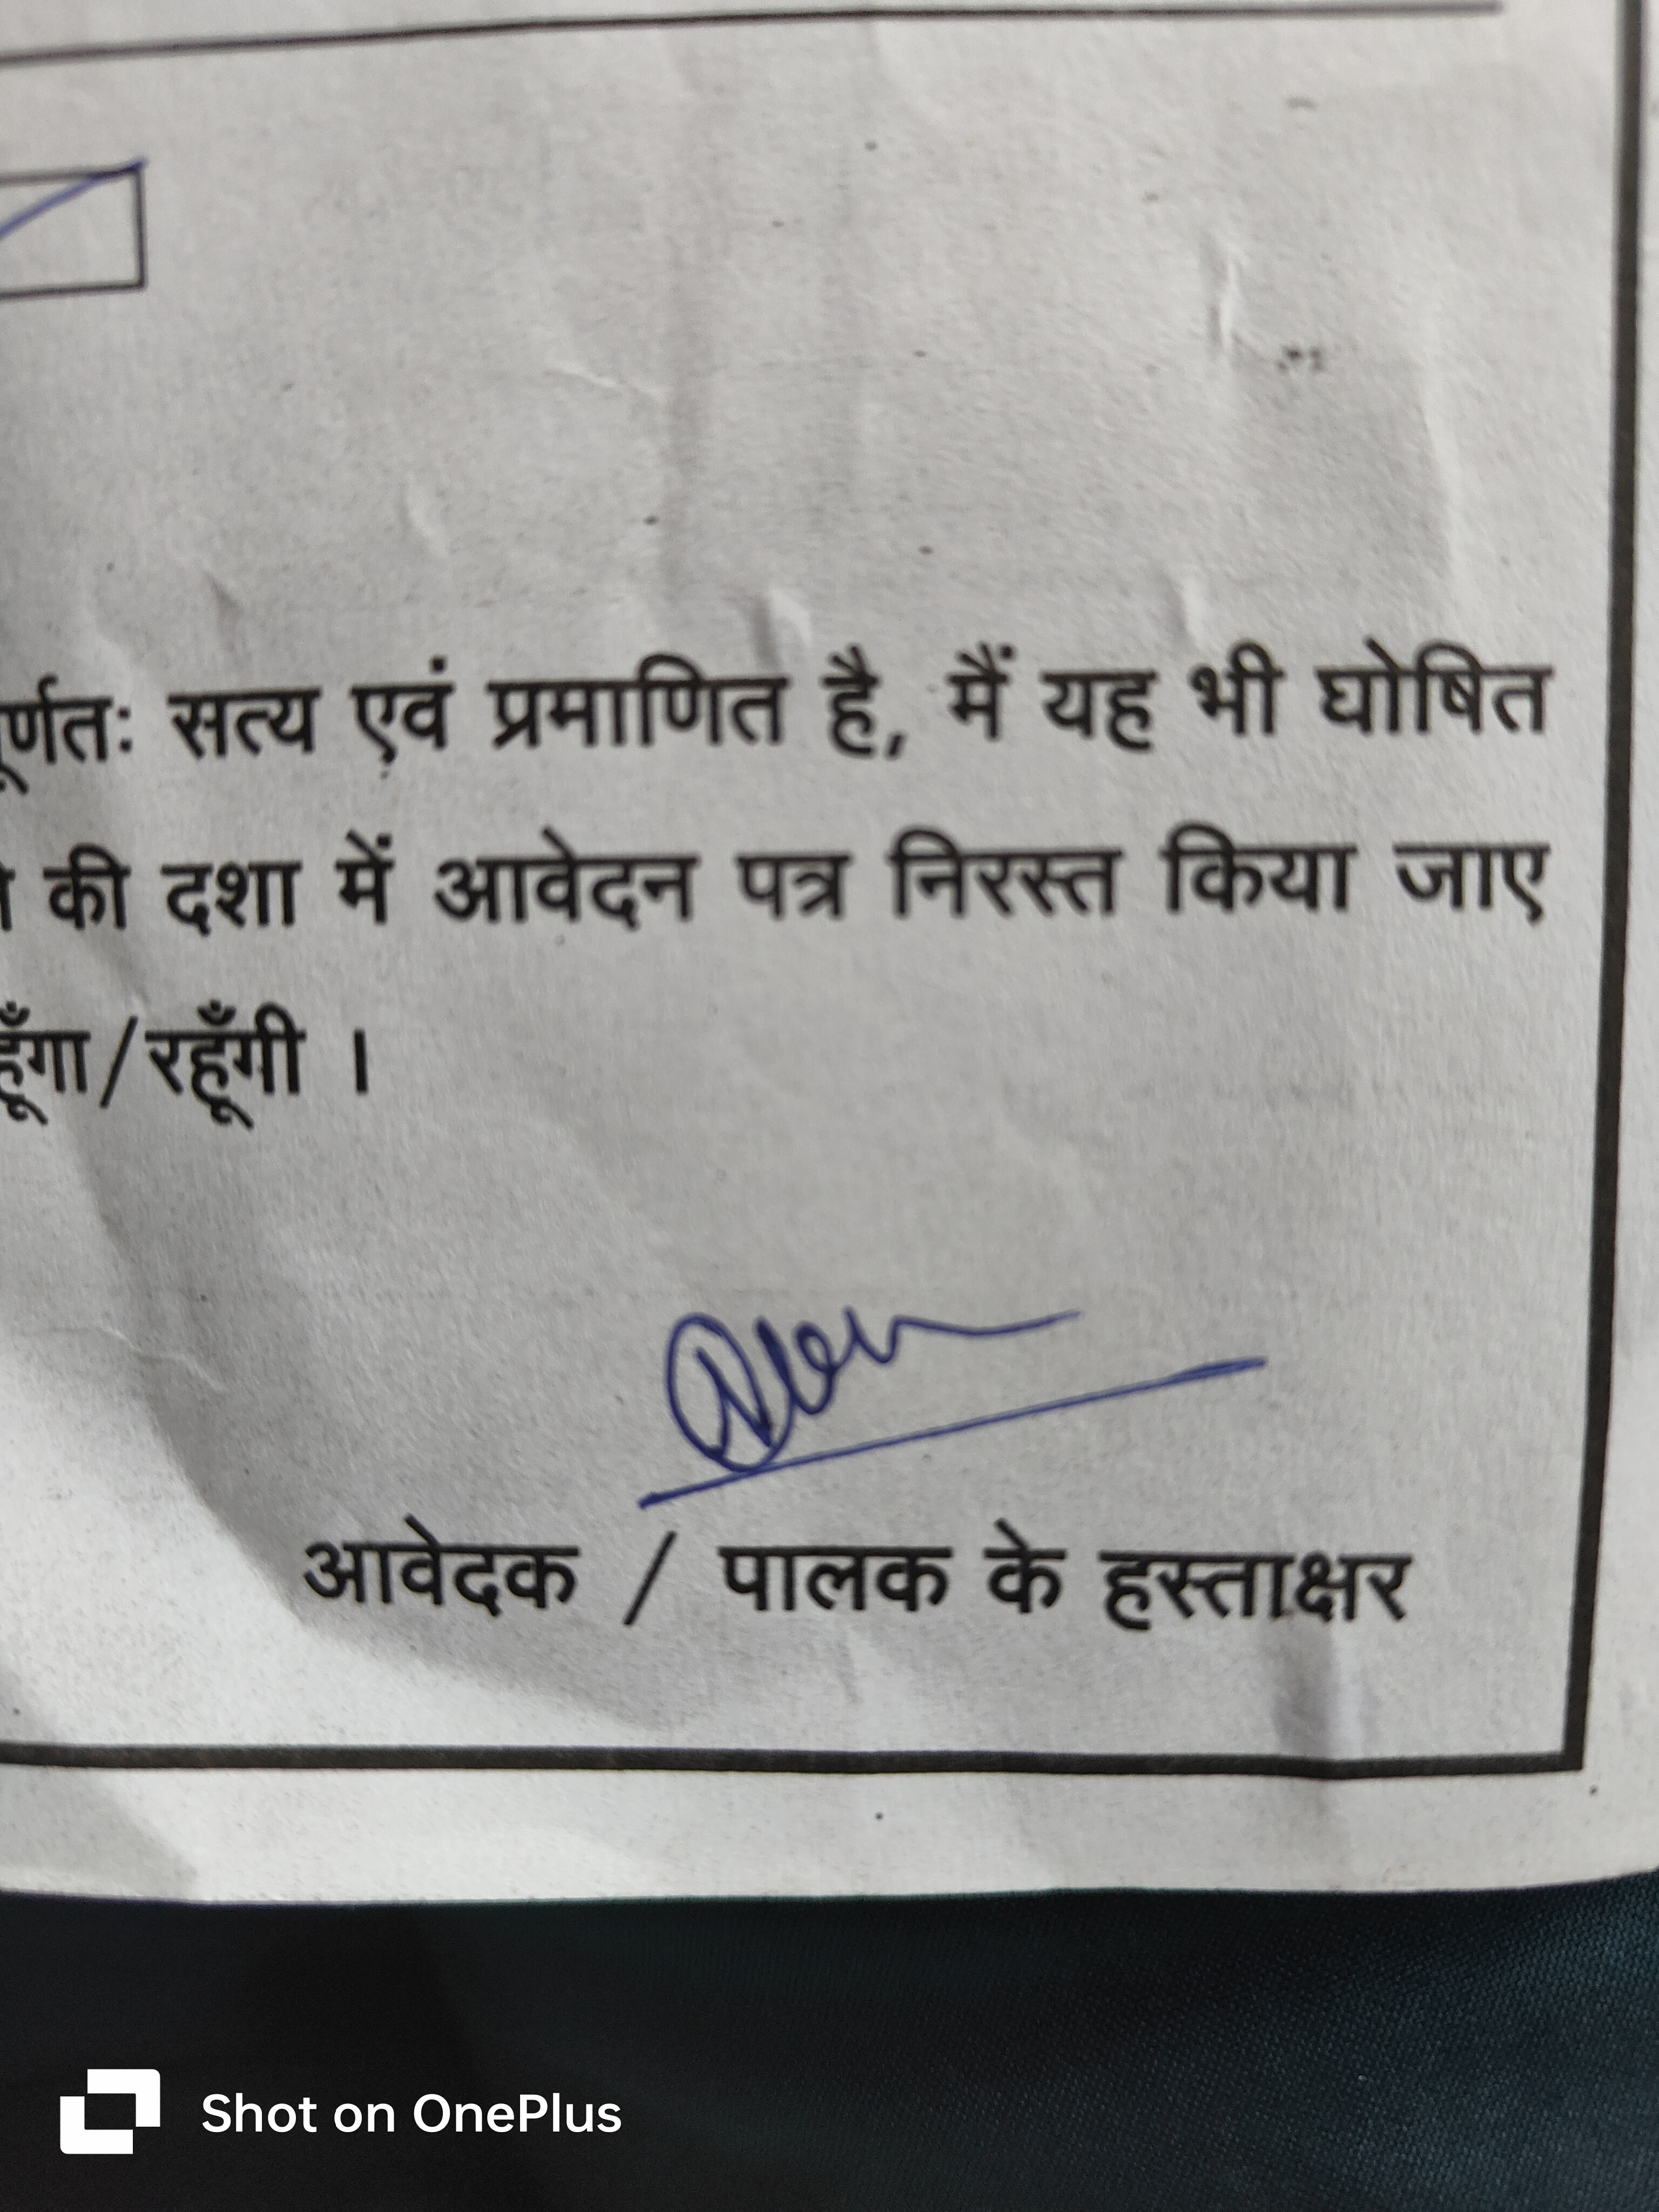 सत्य एवं प्रमाणित है, मैं यह भी घोषित
की दशा में आवेदन पत्र निरस्त किया जाए
/रहूँगी ।
आवेदक / पालक के हस्ताक्षर
Shot on OnePlus